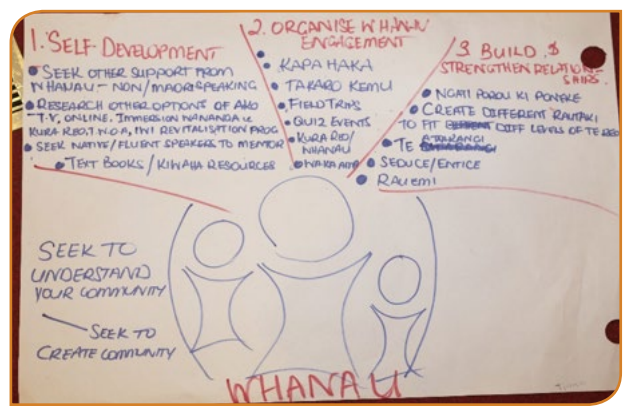 1. SELF-DEVELOPMENT
• SEEK OTHER SUPPORT FROM
WHANAU - NON/MAORI SPEAKING
• RESEARCH OTHER OPTIONS OF AKO
- T.V, ONLINE, IMMERSION WANANGA ie
KURA REO, T.W.O.A, IWI REVITALISATION PROG
• SEEK NATIVE/FLUENT SPEAKERS TO MENTOR
• TEXT BOOKS / KIWAHA RESOURCES
2. ORGANISE WHANAU
ENGAGEMENT
• KAPA HAKA
• TAKARO KEMU
• FIELD TRIPS
• QUIZ EVENTS
• KURA REO/
WHANAU
• WAKA AMA
3. BUILD &
STRENGTHEN RELATION-
SHIPS
• NGATI POROU KI PONEKE
• CREATE DIFFERENT RAUTAKI
TO FIT DIFF LEVELS OF TE REO
• TE ATAARANGI
• SEDUCE/ENTICE
• RAUEMI
SEEK TO
UNDERSTAND
YOUR COMMUNITY
- SEEK TO
CREATE COMMUNITY
WHANAU